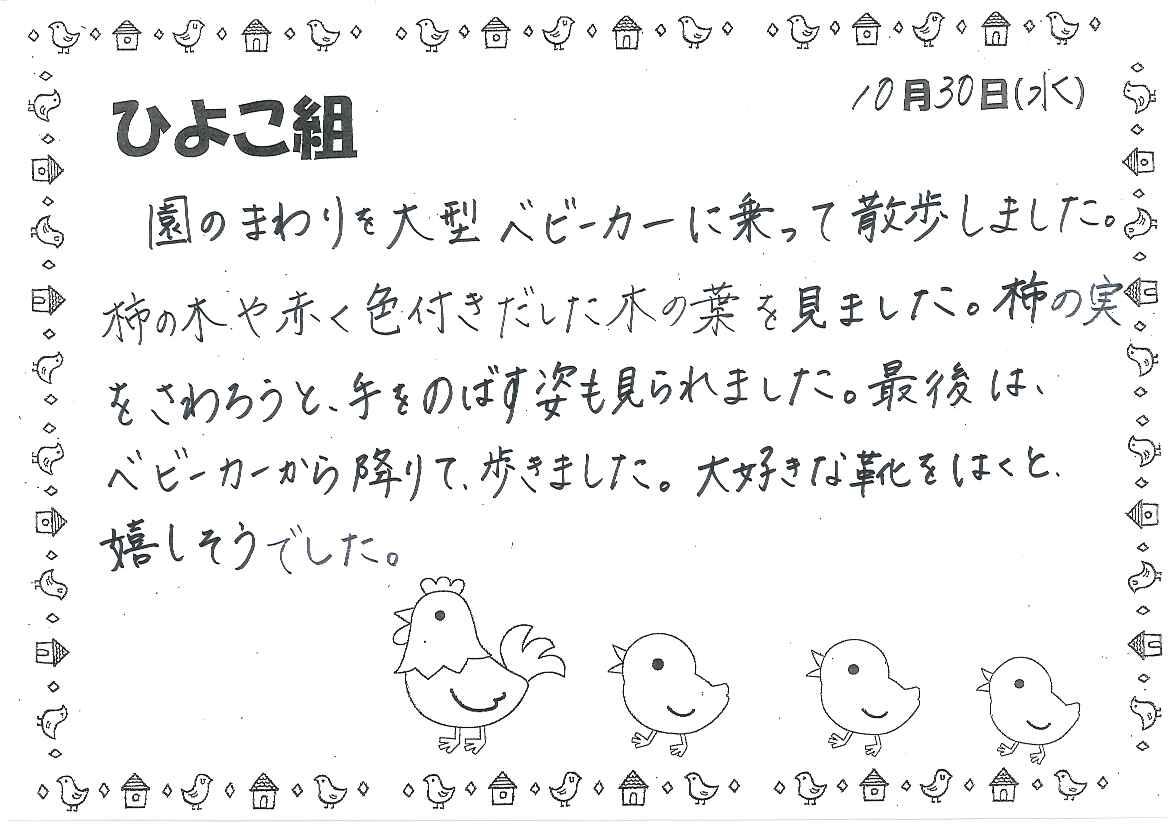 10月30日(水)
ひよこ組
園のまわりを大型ベビーカーに乗って散歩しました。
柿の木や赤く色付きだした木の葉を見ました。柿の実
をさわろうと、手をのばす姿も見られました。最後は、
ベビーカーから降りて、歩きました。大好きな靴をはくと、
嬉しそうでした。